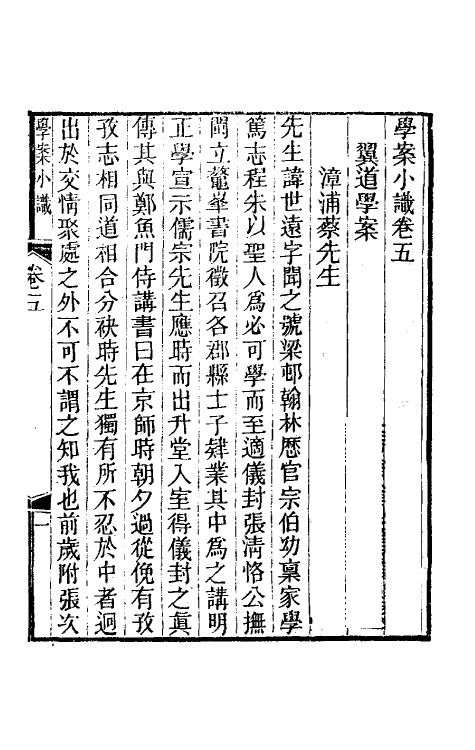 學案小識卷五
翼道學案
漳浦蔡先生
先生諱世遠字聞之號梁邨翰林歷官宗伯幼稟家學
篤志程朱以聖人爲必可學而至適儀封張淸恪公撫
閩立鼇峯書院徵召各郡縣士子肄業其中爲之講明
正學宣示儒宗先生應時而出升堂入室得儀封之眞
傳其與鄭魚門侍講書曰在京師時朝夕過從俛有孜
孜志相同道相合分袂時先生獨有所不忍於中者迥
出於交情聚處之外不可不謂之知我也前歲附張次
學案小識
卷五
一